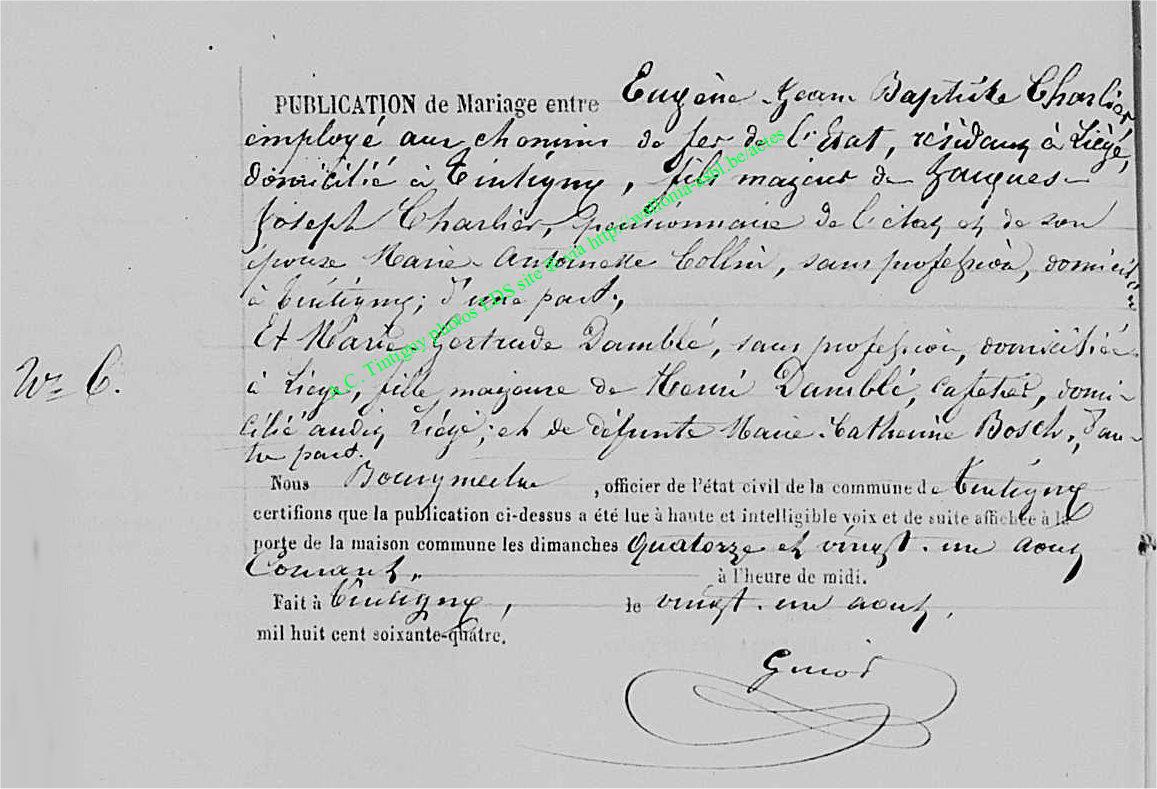 PUBLICATION de Mariage entre Eugène Jean Baptiste Charlier
employé aux chemins de fer de l'Etat, résidant à Liège,
domicilié à Tintigny, fils majeur de Jacques-
Joseph Charlier, pensionnaire de l'état et de son
épouse Marie Antoinette Collin, sans profession, domiciliée
à Tintigny; d'une part;
Et Marie Gertrude Damblé, sans profession, domiciliée
N° 6. à Liège, fille majeure de Henri Damblé, cafetier, domi-
cilié audit Liège; et de défunte Marie Catherine Bosch, d'au-
tre part.
Nous Bourgmestre, officier de l'état civil de la commune de Tintigny
certifions que la publication ci-dessus a été lue à haute et intelligible voix et de suite affichée à la
porte de la maison commune les dimanches quatorze et vingt-un aout
Courant, à l'heure de midi.
Fait à Tintigny, le vingt-un aout,
mil huit cent soixante-quatre.
A.C. Tintigny photos EDS site via http://wallonia-asbl.be/actes